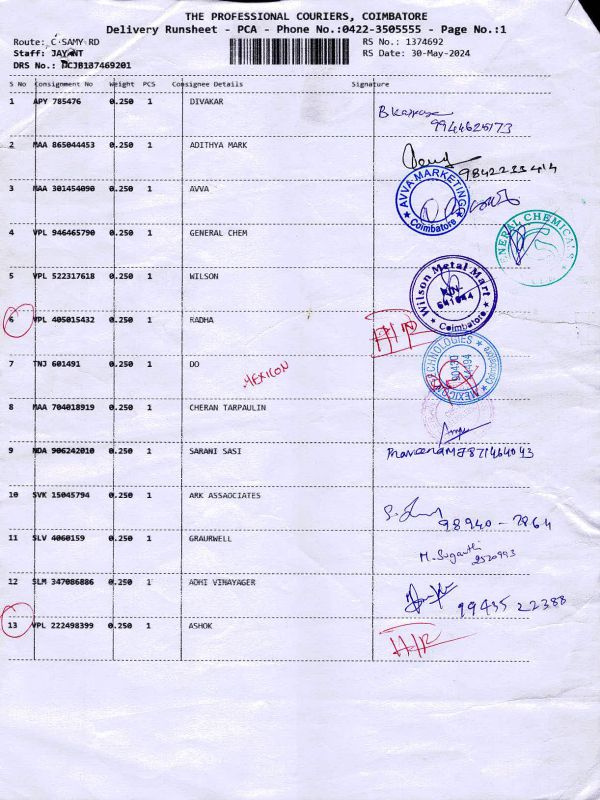 THE PROFESSIONAL COURIERS, COIMBATORE
Delivery Runsheet - PCA - Phone No.:0422-3505555 - Page No.:1
Route: C SAMY RD RS No.: 1374692
Staff: JAYANT RS Date: 30-May-2024
DRS No.: DCJB187469201
S No Consignment No Weight PCS Consignee Details Signature
1 APY 785476 0.250 1 DIVAKAR
9944625173
2 MAA 865044453 0.250 1 ADITHYA MARK
9842233414
3 MAA 301454090 0.250 1 AVVA
AVVA MARKETING
Coimbatore
4 VPL 946465790 0.250 1 GENERAL CHEM
5 VPL 522317618 0.250 1 WILSON
Wilson Metal Mart
641044
Coimbatore
6 VPL 405015432 0.250 1 RADHA
7 TNJ 601491 0.250 1 DO
MEXICON
8 MAA 704018919 0.250 1 CHERAN TARPAULIN
9 NDA 906242010 0.250 1 SARANI SASI
10 SVK 15045794 0.250 1 ARK ASSAOCIATES
98940-7864
11 SLV 4060159 0.250 1 GRAURWELL
M. Suganthi
2520993
12 SLM 347086886 0.250 1 ADHI VINAYAGER
99435 22388
13 VPL 222498399 0.250 1 ASHOK